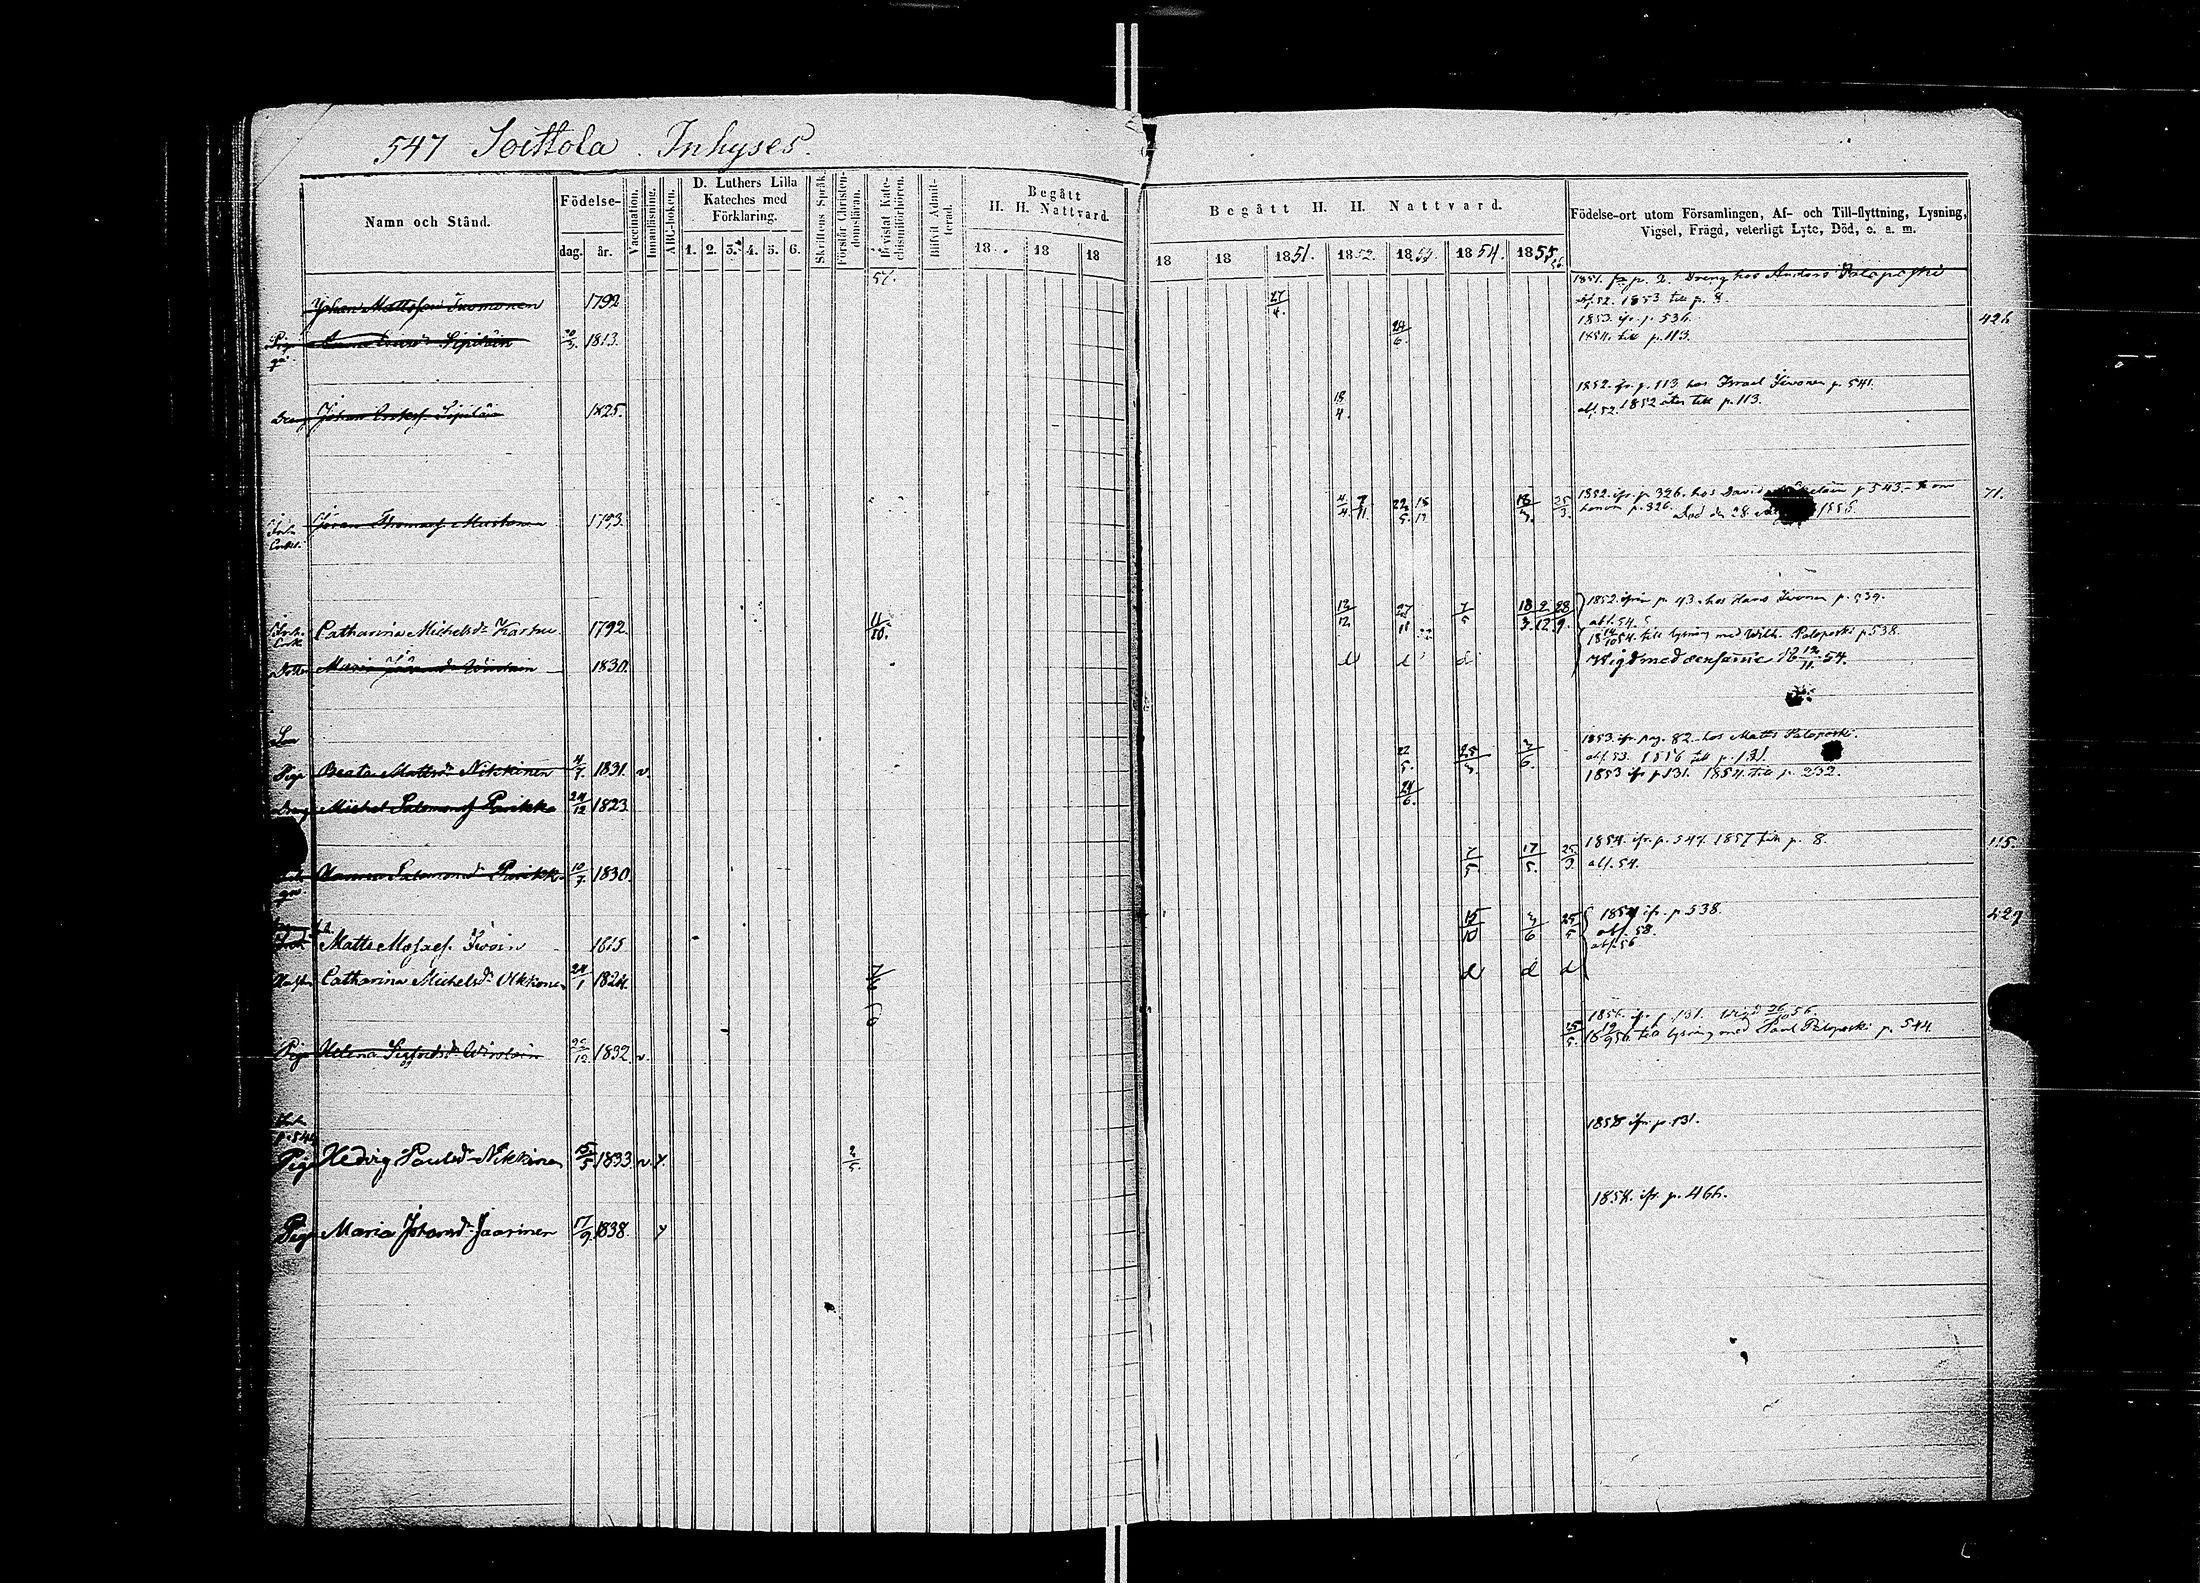 547 Soittola. Inhyses.
Namn och Stånd.
Födelse-
dag. år.
Vaccination.
Innanläsning.
ABC-boken.
D. Luthers Lilla
Kateches med
Förklaring.
1. 2. 3. 4. 5. 6.
Skriftens Språk.
Förstår Christen-
domsläran.
Bevistat Kate-
chismiförhören.
Blifvit Admit-
terad.
Begått
H. H. Nattvard.
18 18 18
Begått H. H. Nattvard.
18 18 1851. 1852. 1853. 1854. 1855. 56.
Födelse-ort utom Församlingen, Af- och Till-flyttning, Lysning,
Vigsel, Frägd, veterligt Lyte, Död, o. s. m.
57.
1851. fr. p. 2. Dreng hos Anders Paloposki
Johan Mattsson Tuomonen 1792 27/4. abs. 52. 1853 till p. 8.
1853. ifr. p. 536. 426
Piga Sipiläin 20/3. 1813. 24/6. 1854. till p. 113.
1852. ifr. p. 113 hos Israel Iivonen p. 541.
Dreng Johan Sipiläin 1825. 18/4. abs. 52. 1852 åter till p. 113.
1852. ifr. p. 326. hos David p 543. 71.
Göran Thomass. Mustonen 1793. 4/4. 7/11. 22/5. 18/3. 25/3. honom p. 326. Död den 28 1856.
1852. ifrån p. 43. hos Hans Iivonen p. 539.
Catharina Michelsdr Karhu 1792. 11/10. 12/12. 27/11 7/5 18/3. 2/12. 28/9. abs. 54.
18 14/10 54. till lysning med Wilh. Paloposki p 538.
Dotter Maria 1830. d d d Vigd med densamme 18 12/11 54.
1853. ifr. pag. 82. hos Matts Paloposki.
Piga Beata Mattsdr Nikkinen 4/7. 1831. v. 22/5. 25/3. 3/6. abs. 53. 1856 till p. 131.
1853 ifr p 131. 1854. till p. 232.
Dreng Michel Salomonss Parikka 24/12 1823. 24/6.
1854. ifr. p. 547. 1857 till p. 8. 115.
Salomonsdr Parikka 10/7. 1830. 7/5. 17/5. 25/3 abs. 54.
1854 ifr. p 538. 429
Matts Mosess. Iivoin 1815 15/10 3/6 25/5 abs. 58.
abs. 56
Hustru Catharina Michelsdr Ukkonen 24/1 1824. d d d
1856. ifr. p. 131. vigd 26/10 56.
Piga Helena Sigfridsdr 25/12. 1832. v. 25/5. till lysning med Paul Paloposki p. 544.
p. 544 1858 ifr. p. 131.
Piga Hedvig Paulsdr Nikkinen 15/5 1833. v. y. 2/5.
1858. ifr. p. 466.
Piga Maria Johansdr Jaarinen 17/9. 1838. y